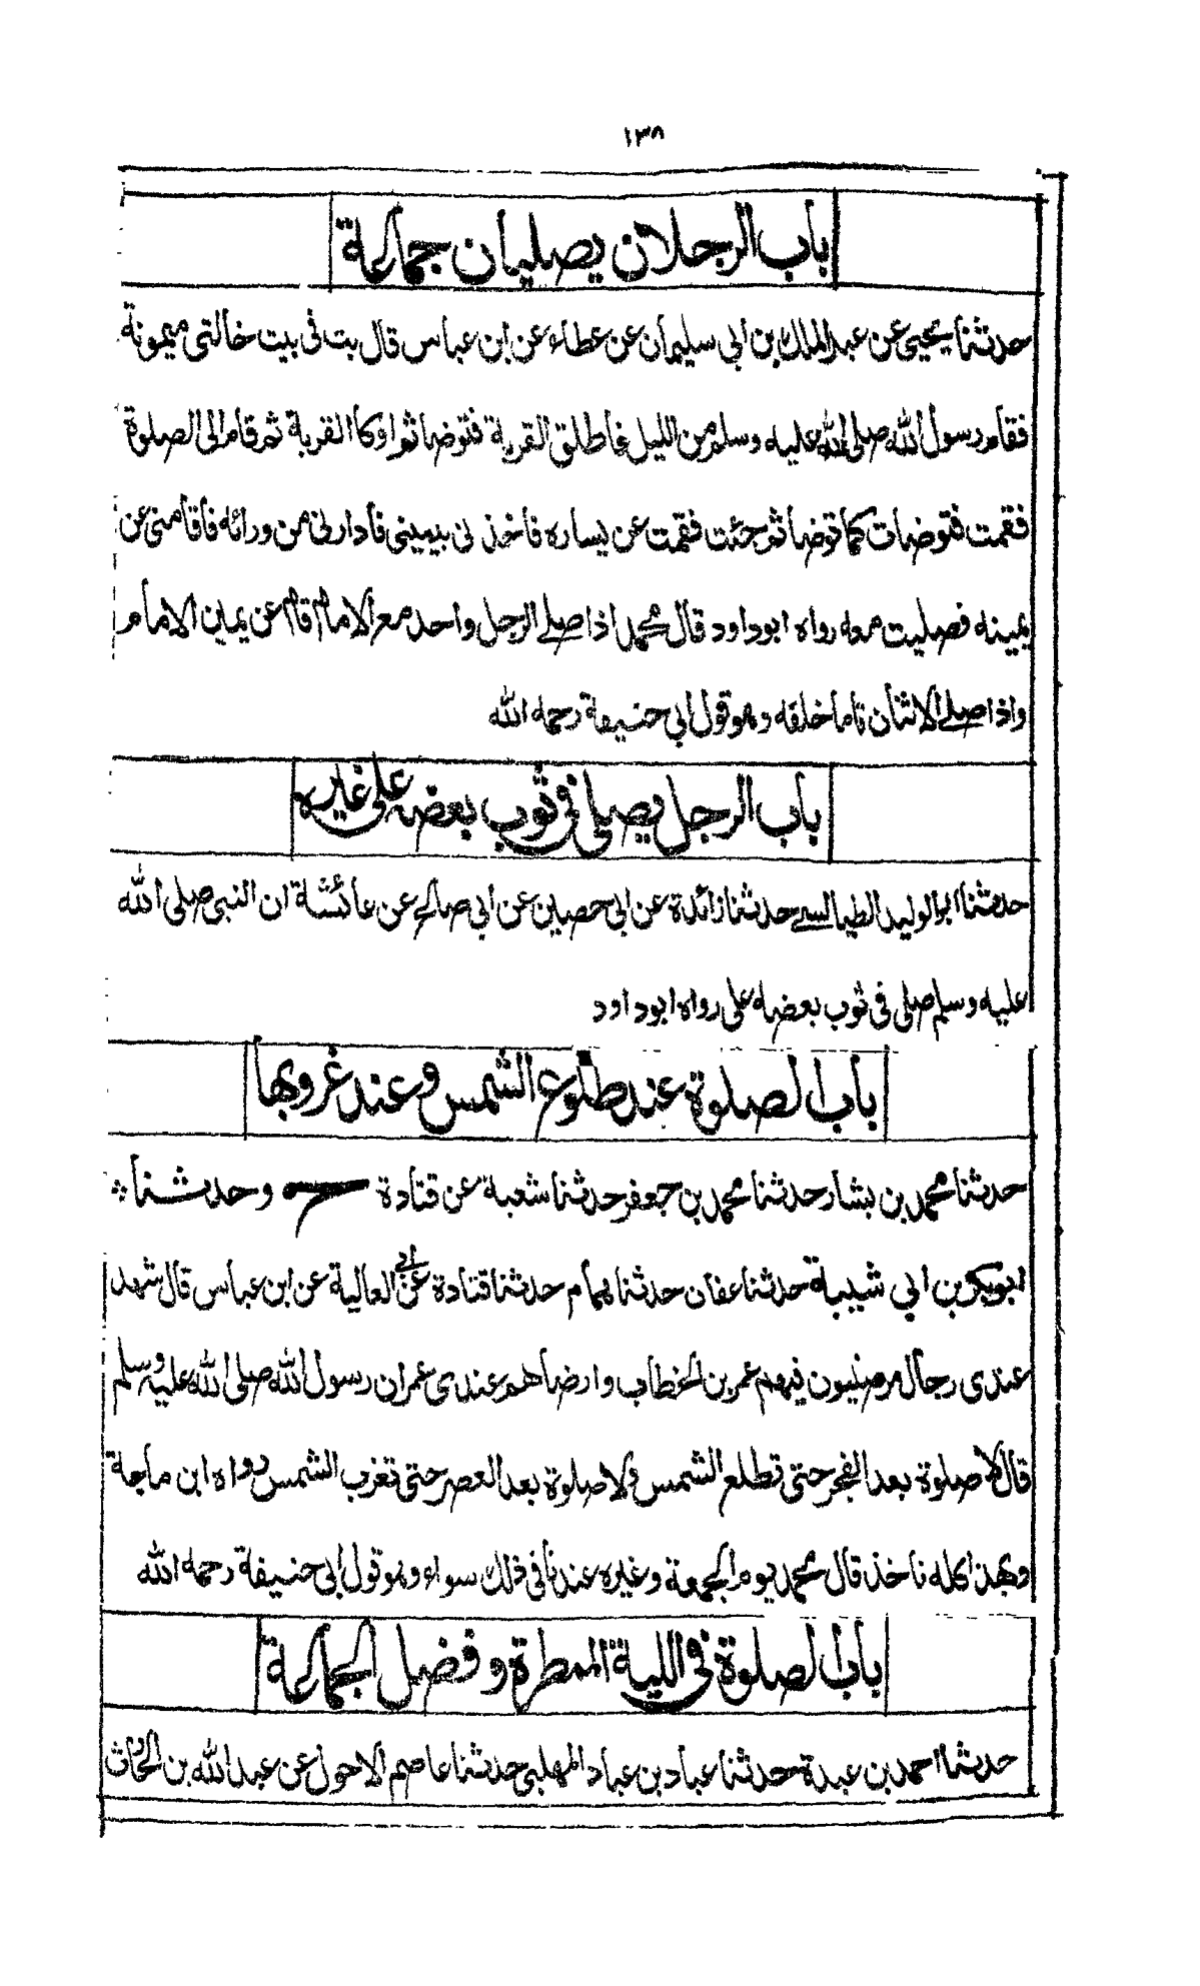 ١٣٨
باب الرجلان يصليان جماعة
حدثنا يحيى عن عبد الملك بن ابي سليمان عن عطاء عن ابن عباس قال بت في بيت خالتى ميمونة
فقام رسول الله صلى الله عليه وسلم من الليل فاطلق القربة فتوضا ثم اوكا القربة ثم قام الى الصلوة
فقمت فتوضات كما توضا ثم جئت فقمت عن يساره فاخذ نى بيمينى فادارنى من ورائه فاقامنى عن
يمينه فصليت معه رواه ابوداود قال محمد اذا صلے الرجل واحد مع الامام اقام عن يمين الامام
واذا صلے الاثنان قاما خلفه وهو قول ابي حنيفة رحمه الله
باب الرجل يصلى فى ثوب بعضه على غيره
حدثنا ابو الوليد الطيالسے حدثنا زائدة عن ابى حصين عن ابي صالح عن عائشة ان النبي صلى الله
عليه وسلم صلى فى ثوب بعضه على رواه ابوداود
باب الصلوة عند طلوع الشمس وعند غروبها
حدثنا محمد بن بشار حدثنا محمد بن جعفر حدثنا شعبة عن قتادة ح وحدثنا
ابوبكر بن ابي شيبة حدثنا عفان حدثنا همام حدثنا قتادة عن ابي العالية عن ابن عباس قال شهد
عندى رجال مرضيون فيهم عمر بن الخطاب وارضاهم عندى عمر ان رسول الله صلى الله عليه وسلم
قال لا صلوة بعد الفجر حتى تطلع الشمس ولا صلوة بعد العصر حتى تغرب الشمس رواه ابن ماجة
وبهذا كله ناخذ قال محمد يوم الجمعة وغيره عندنا فى ذلك سواء وهو قول ابي حنيفة رحمه الله
باب الصلوة فى الليلة الممطرة وفضل الجماعة
حدثنا احمد بن عبدة حدثنا عباد بن عباد المهلبي حدثنا عاصم الاحول عن عبد الله بن الحارث